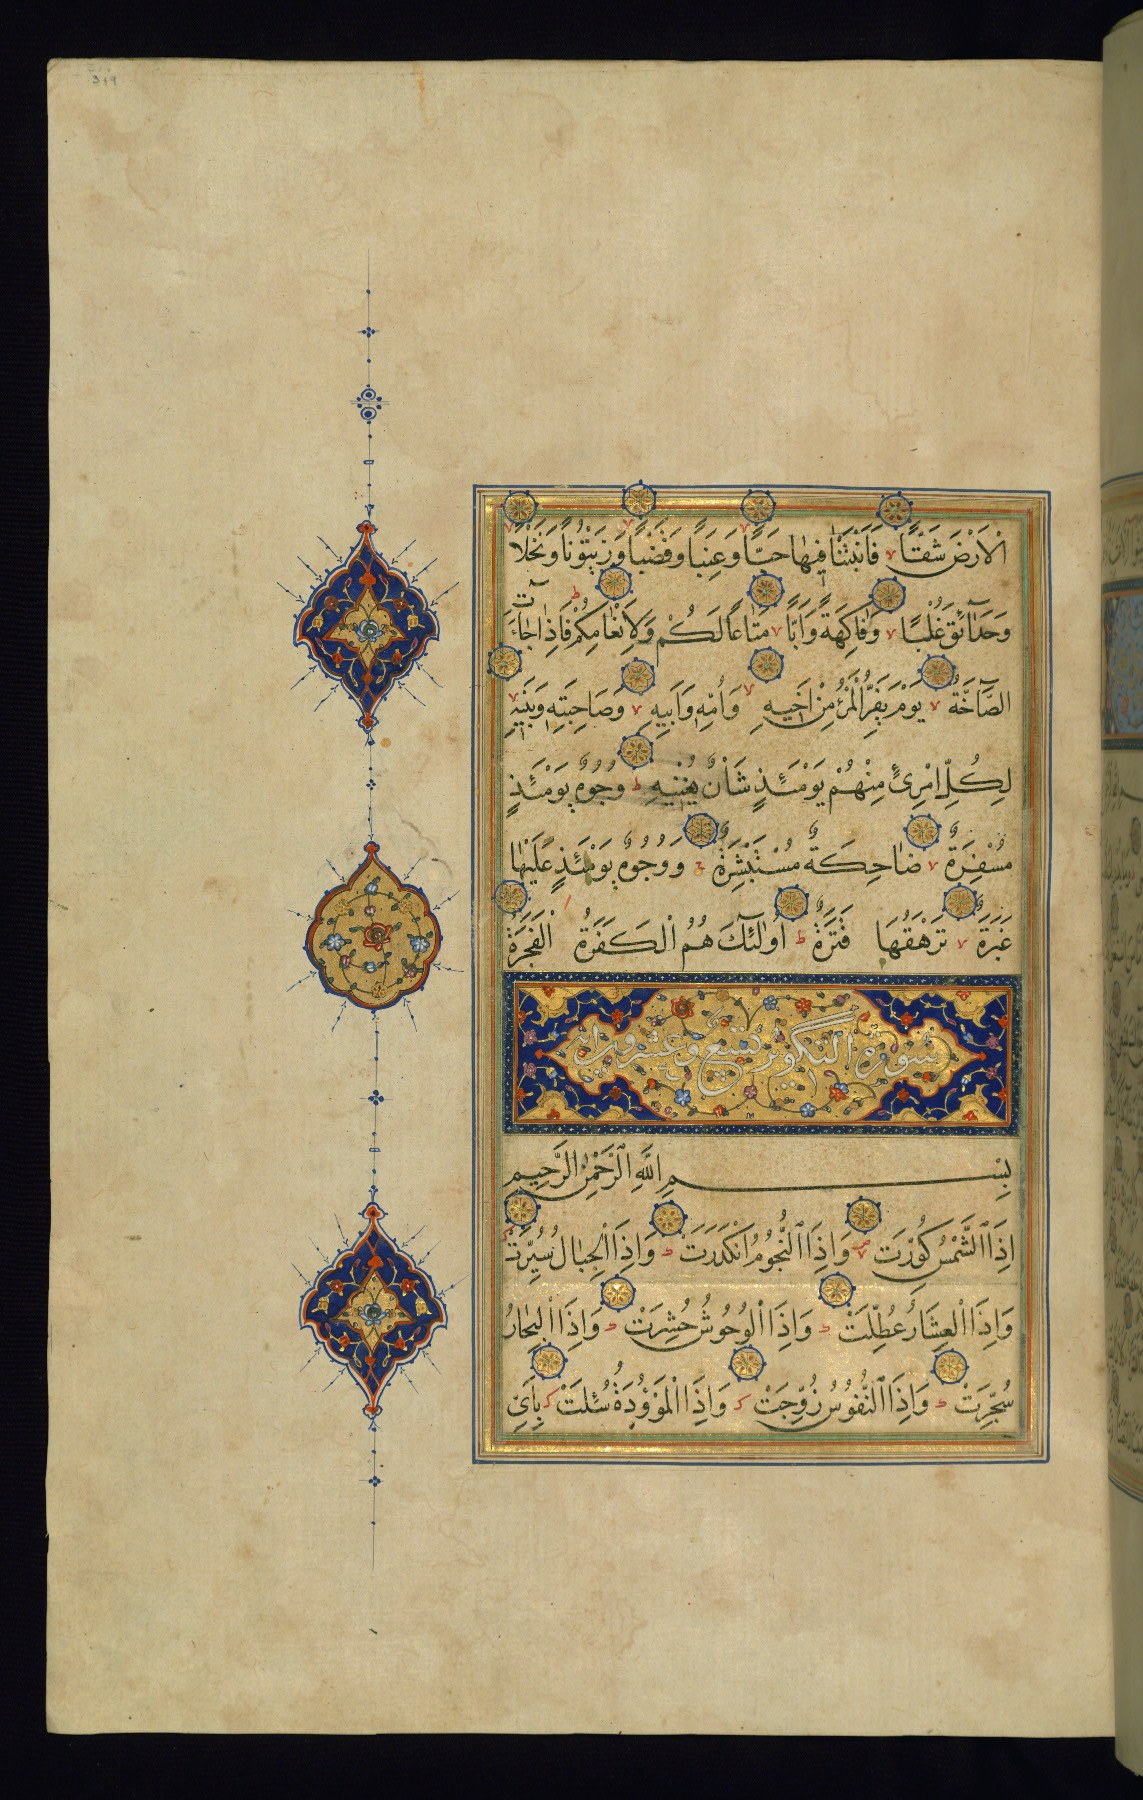 349
الْاَرْضَ شَقًّا فَاَنْبَتْنَا فِيهَا حَبًّا وَعِنَبًا وَقَضْبًا وَزَيْتُونًا وَنَخْلًا
وَحَدَآئِقَ غُلْبًا وَفَاكِهَةً وَاَبًّا مَتَاعًا لَكُمْ وَلِاَنْعَامِكُمْ فَاِذَا جَآءَتِ
الصَّآخَّةُ يَوْمَ يَفِرُّ الْمَرْءُ مِنْ اَخِيهِ وَاُمِّهِ وَاَبِيهِ وَصَاحِبَتِهِ وَبَنِيهِ
لِكُلِّ امْرِئٍ مِنْهُمْ يَوْمَئِذٍ شَاْنٌ يُغْنِيهِ وُجُوهٌ يَوْمَئِذٍ
مُسْفِرَةٌ ضَاحِكَةٌ مُسْتَبْشِرَةٌ وَوُجُوهٌ يَوْمَئِذٍ عَلَيْهَا
غَبَرَةٌ تَرْهَقُهَا قَتَرَةٌ اُولٰٓئِكَ هُمُ الْكَفَرَةُ الْفَجَرَةُ
سورة التكوير تسع وعشرون اية
بِسْمِ اللّٰهِ الرَّحْمٰنِ الرَّحِيمِ
اِذَا الشَّمْسُ كُوِّرَتْ وَاِذَا النُّجُومُ انْكَدَرَتْ وَاِذَا الْجِبَالُ سُيِّرَتْ
وَاِذَا الْعِشَارُ عُطِّلَتْ وَاِذَا الْوُحُوشُ حُشِرَتْ وَاِذَا الْبِحَارُ
سُجِّرَتْ وَاِذَا النُّفُوسُ زُوِّجَتْ وَاِذَا الْمَوْؤُدَةُ سُئِلَتْ بِاَيِّ